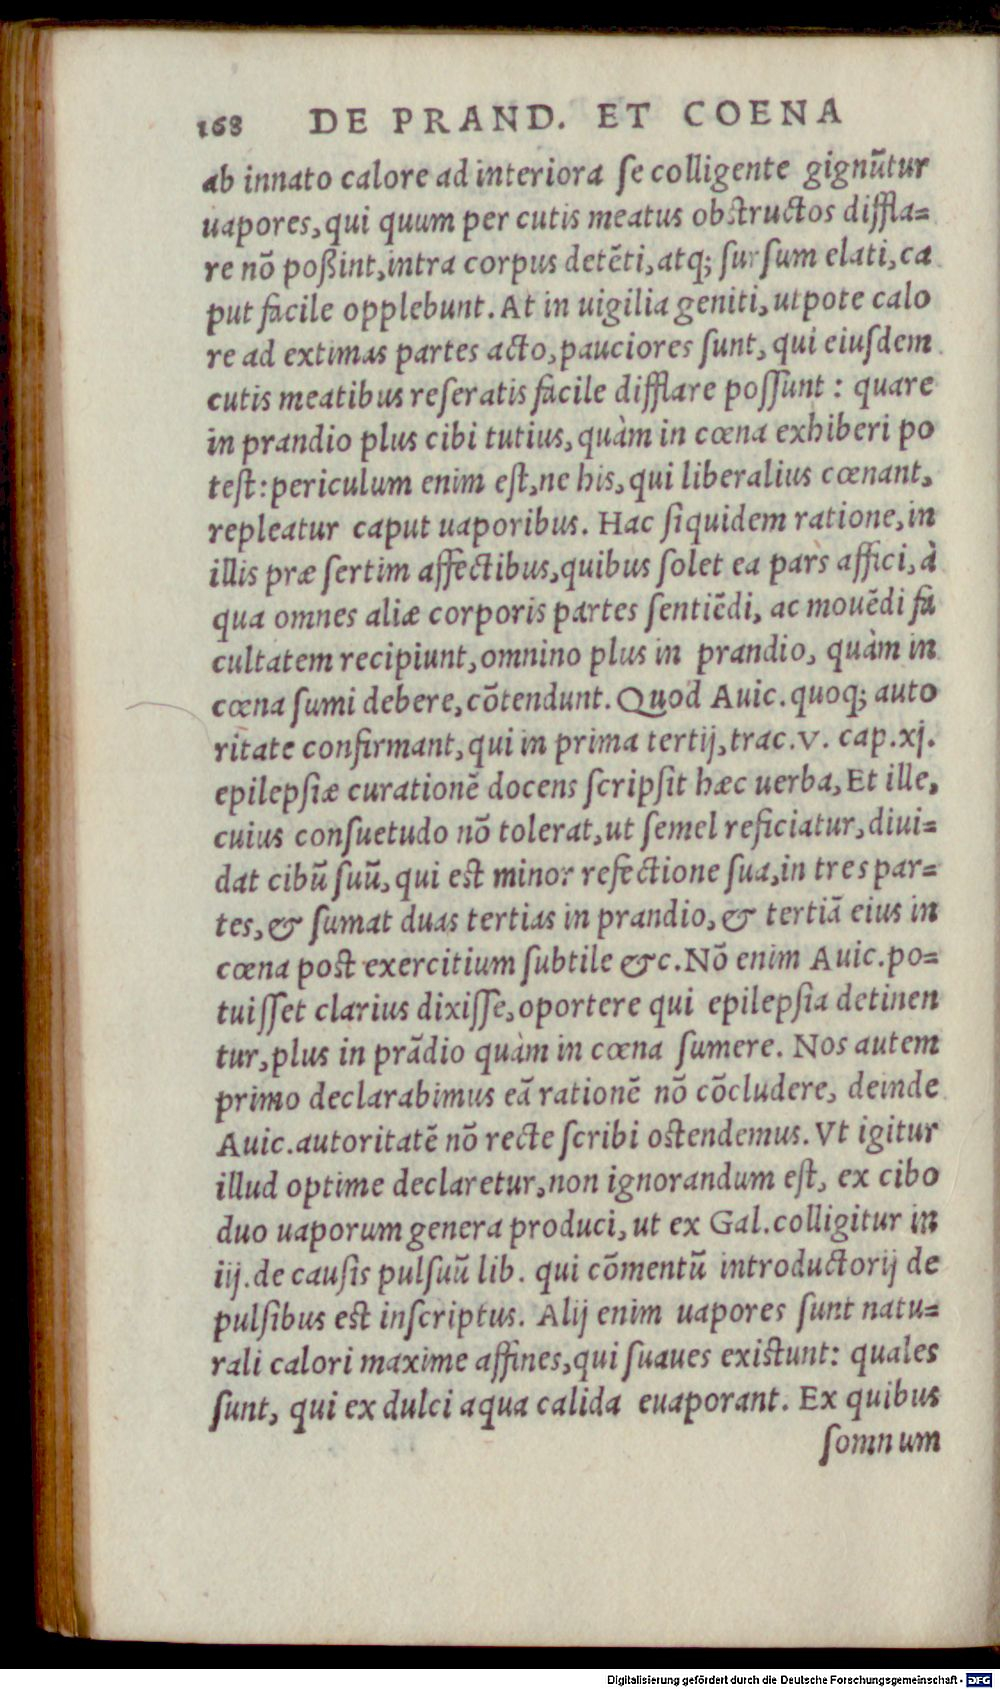 168 DE PRAND. ET COENA
ab innato calore ad interiora ſe colligente gignũtur
uapores, qui quum per cutis meatus obstructos diffla=
re nõ poßint, intra corpus detẽti, atq; ſurſum elati, ca
put facile opplebunt. At in uigilia geniti, utpote calo
re ad extimas partes acto, pauciores ſunt, qui eiuſdem
cutis meatibus reſeratis facile difflare poſſunt : quare
in prandio plus cibi tutius, quàm in cœna exhiberi po
teſt: periculum enim eſt, ne his, qui liberalius cœnant,
repleatur caput uaporibus. Hac ſiquidem ratione, in
illis præ ſertim affectibus, quibus ſolet ea pars affici, à
qua omnes aliæ corporis partes ſentiẽdi, ac mouẽdi fa
cultatem recipiunt, omnino plus in prandio, quàm in
cœna ſumi debere, cõtendunt. Quod Auic. quoq; auto
ritate confirmant, qui in prima tertij, trac. v. cap. xj.
epilepſiæ curationẽ docens ſcripſit hæc uerba, Et ille,
cuius conſuetudo nõ tolerat, ut ſemel reficiatur, diui=
dat cibũ ſuũ, qui est minor refectione ſua, in tres par=
tes, & ſumat duas tertias in prandio, & tertiã eius in
cœna post exercitium ſubtile &c. Nõ enim Auic. po=
tuiſſet clarius dixiſſe, oportere qui epilepſia detinen
tur, plus in prãdio quàm in cœna ſumere. Nos autem
primo declarabimus eã rationẽ nõ cõcludere, deinde
Auic. autoritatẽ nõ recte ſcribi ostendemus. Vt igitur
illud optime declaretur, non ignorandum eſt, ex cibo
duo uaporum genera produci, ut ex Gal. colligitur in
iij. de cauſis pulſuũ lib. qui cõmentũ introductorij de
pulſibus est inſcriptus. Alij enim uapores ſunt natu=
rali calori maxime affines, qui ſuaues existunt: quales
ſunt, qui ex dulci aqua calida euaporant. Ex quibus
ſomnum
Digitalisierung gefördert durch die Deutsche Forschungsgemeinschaft - DFG